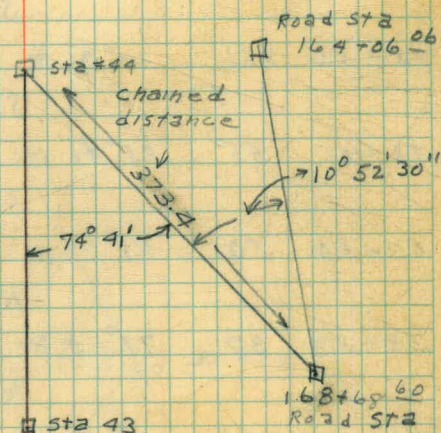 Road Sta
164+06 06
Sta #44
Chained
distance
373.4
10° 52' 30"
74° 41'
168+68 60
Road Sta
Sta 43